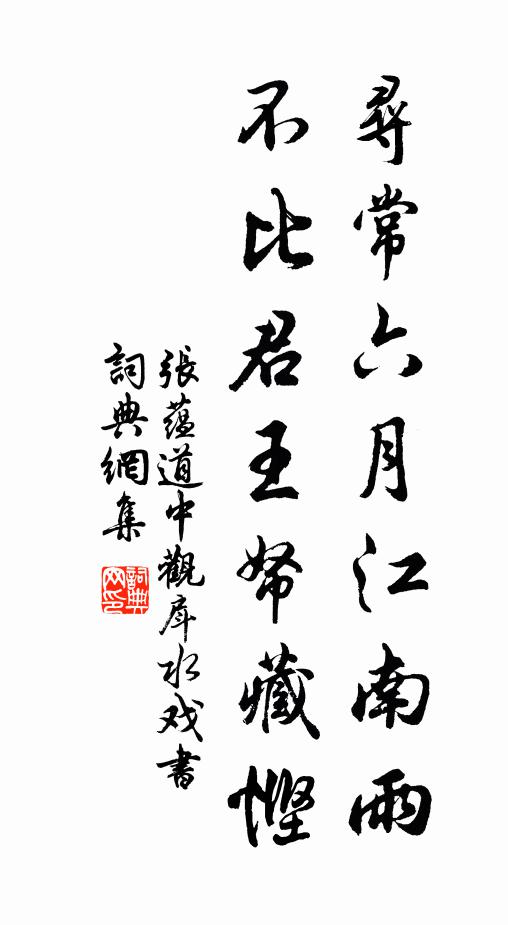 尋常六月江南雨
不比君王帑藏慳
張藴道中觀戽水戏書
詞典網集
詞典网印